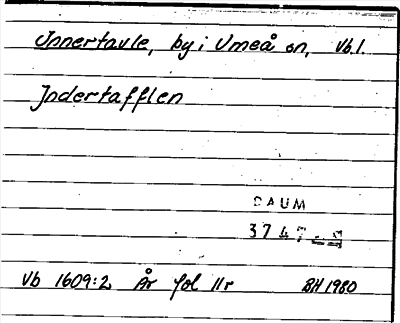 Innertavle, by i Umeå sn, Vb l.
Indertafflen
DAUM
3747
Vb 1609:2 År fol 11r BH 1980